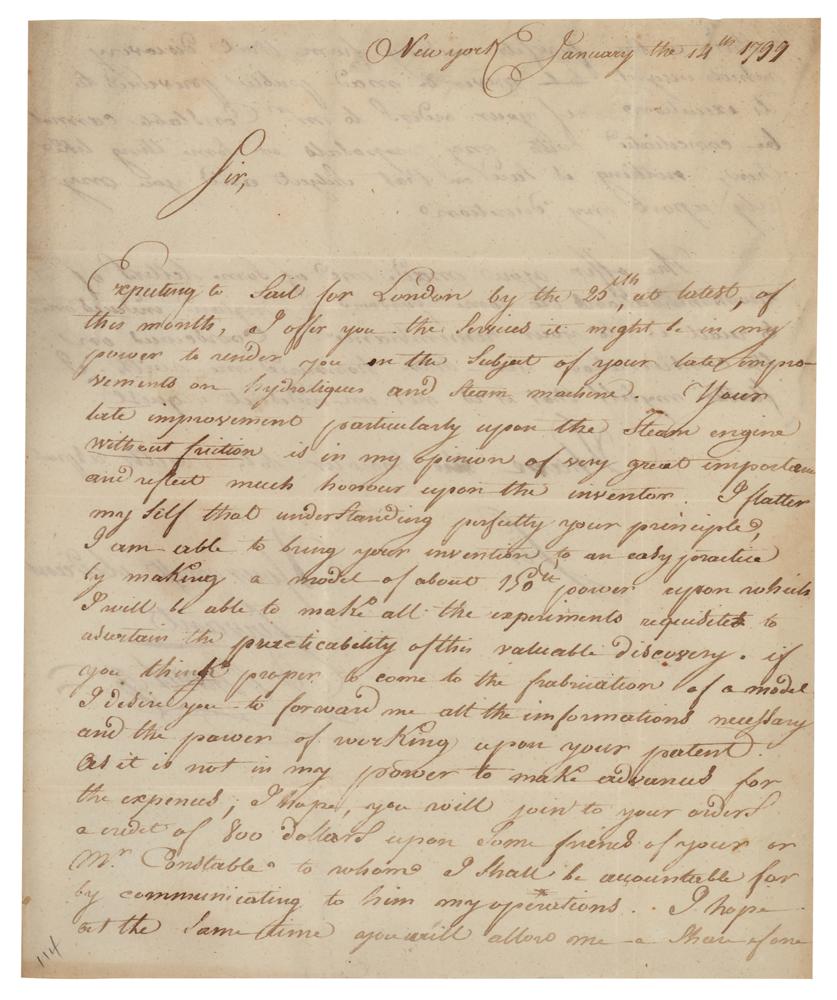 New york January the 14th 1799
Sir,
Expecting to Sail for London by the 25th, at latest, of
this month, I offer you the Services it might be in my
power to render you on the Subject of your late impro-
vements on hydroliques and Steam machine. Your
late improvement particularly upon the Steam engine
without friction is in my opinion of very great importance
and reflect much honour upon the inventor. I flatter
my Self that understanding perfectly your principle,
I am able to bring your invention to an easy practice
by making a model of about power upon which
I will be able to make all the experiments requisites to
ascertain the practicability of this valuable discovery. if
you think proper to come to the fabrication of a model
I desire you to forward me all the informations necessary
and the power of working upon your patent.
As it is not in my power to make advances for
the expences, I hope, you will join to your orders
a credit of 800 dollars upon Some friend of your or
Mr Constable to whom I Shall be accountable for
by communicating to him my operations. I hope
at the Same time you will allow me a Share of one
114